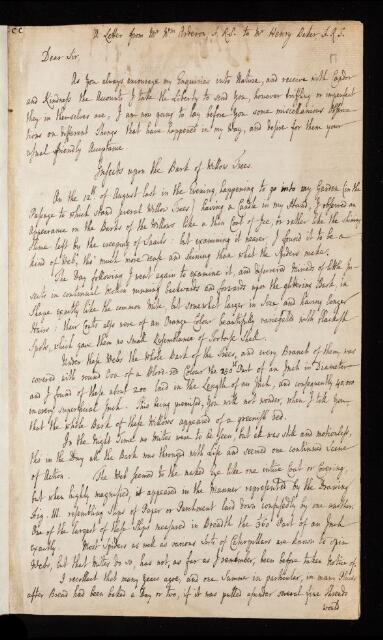 A Letter from Mr Wm Arderon, F.R.S. to Mr Henry Baker F.R.S.
Dear Sir,
As You always encourage my Enquiries into Nature, and receive with Candor
and Kindness the Accounts I take the Liberty to send You, however trifling or imperfect
they in themselves are, I am now going to lay before You some miscellaneous Observa-
tions on different Things that have happened in my Way, and desire for them your
usual friendly Acceptance.
Insects upon the Bark of Willow Trees.
On the 12th of August last in the Evening happening to go into my Garden (in the
Passage to which stand several Willow Trees) having a Candle in my Hand, I observed an
Appearance on the Barks of the Willows like a thin Coat of Ice, or rather like the shining
Slime left by the creeping of Snails: but examining it nearer, I found it to be a
kind of Web, tho' much more close and shining than what the Spiders make.
The Day following I went again to examine it, and discovered Miriads of little In-
sects in continual Motion running backwards and forwards upon the glittering Bark, in
Shape exactly like the common Mite, but somewhat larger in Size and having longer
Hairs: their Coats also were of an Orange Colour beautifully variegated with blackish
Spots, which gave them no small Resemblance of Tortoise Shell.
Under these Webs the whole Bark of the Trees, and every Branch of them, was
covered with round Ova of a blood-red Colour the 250 Part of an Inch in Diameter
and I found of these about 200 laid in the Length of an Inch, and consequently 40,000
in every superficial Inch. This being premised, You will not wonder, when I tell You
that the whole Bark of these Willows appeared of a greenish Red.
In the Night Time no Mites were to be seen, but all was still and motionless,
tho in the Day all the Bark was thronged with Life and seemed one continued Scene
of Action. The Web seemed to the naked Eye like one intire Coat or Covering,
but when highly magnified, it appeared in the Manner represented by the Drawing
Fig. III. resembling Slips of Paper or Parchment laid down confusedly by one another.
One of the largest of these Slips measured in Breadth the 360 Part of an Inch
exactly. Most Spiders as well as various Sorts of Caterpillers are known to spin
Webs, but that Mites do so, has not, as far as I remember, been before taken Notice of.
I recollect that many Years ago, and one Summer in particular, in many Places
after Bread had been baked a Day or two, if it was pulled asunder several fine Threads
would